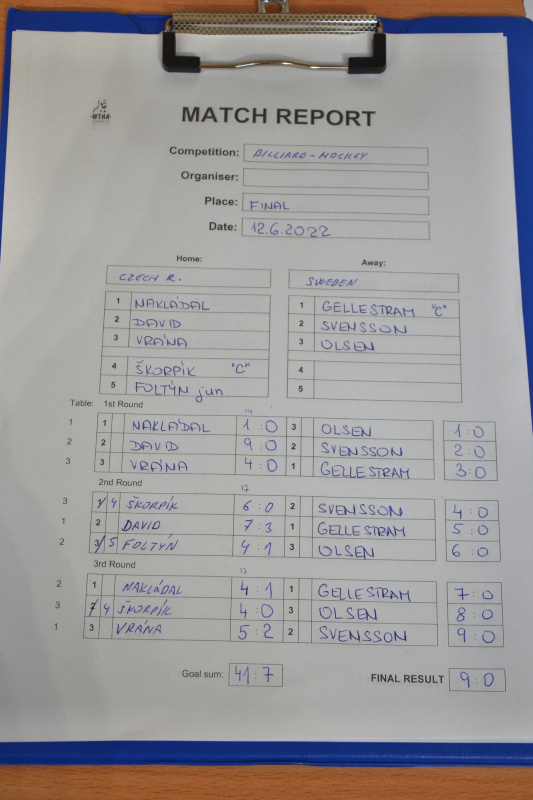 WTHA
MATCH REPORT
Competition: BILLIARD-HOCKEY
Organiser:
Place: FINAL
Date: 12.6.2022
Home: Away:
CZECH R. SWEDEN
1 NAKLÁDAL 1 GELLESTRAM "C"
2 DAVID 2 SVENSSON
3 VRÁNA 3 OLSEN
4 ŠKORPÍK "C" 4
5 FOLTÝN jun 5
Table: 1st Round
1 1 NAKLÁDAL 1:0 3 OLSEN 1:0
2 2 DAVID 9:0 2 SVENSSON 2:0
3 3 VRÁNA 4:0 1 GELLESTRAM 3:0
2nd Round 17
3 1 4 ŠKORPÍK 6:0 2 SVENSSON 4:0
1 2 DAVID 7:3 1 GELLESTRAM 5:0
2 3 5 FOLTÝN 4:1 3 OLSEN 6:0
3rd Round 13
2 1 NAKLÁDAL 4:1 1 GELLESTRAM 7:0
3 2 4 ŠKORPÍK 4:0 3 OLSEN 8:0
1 3 VRÁNA 5:2 2 SVENSSON 9:0
Goal sum: 41:7 FINAL RESULT 9:0